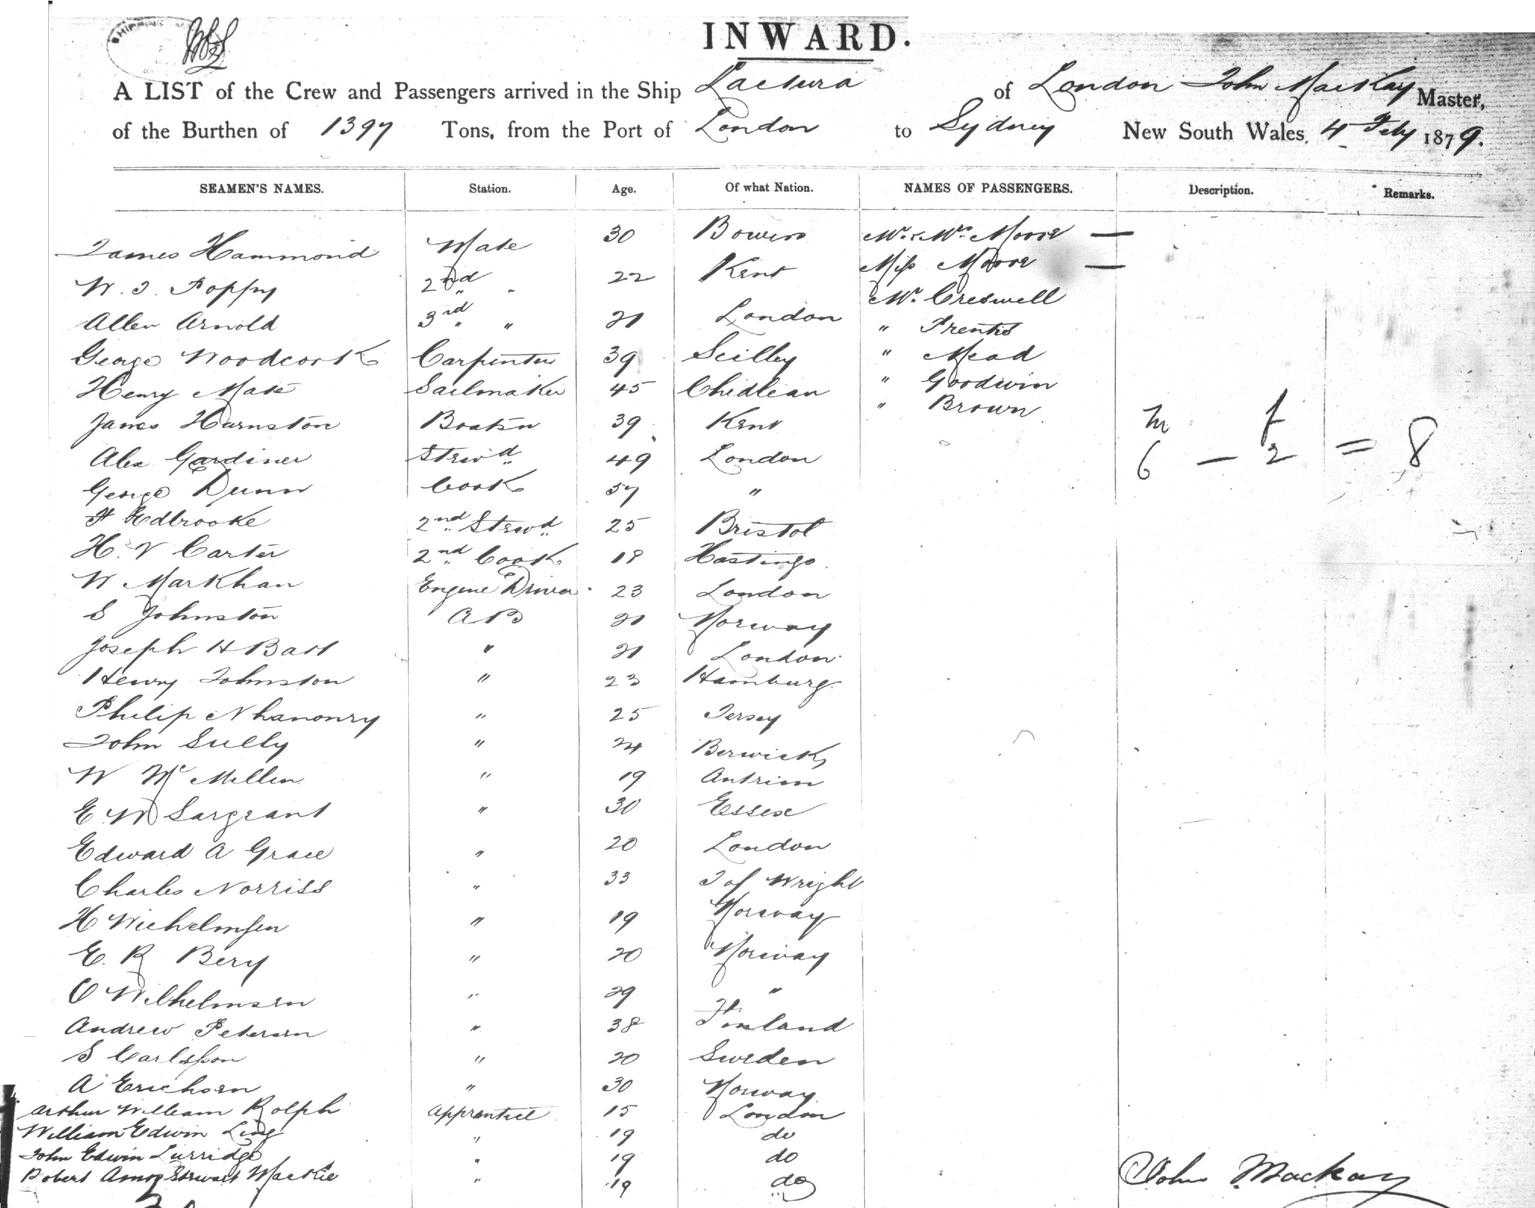 INWARD.
A LIST of the Crew and Passengers arrived in the Ship Lactura of London John MacKay Master,
of the Burthen of 1397 Tons, from the Port of London to Sydney New South Wales, 4 Feby 1879.
SEAMEN'S NAMES. Station. Age. Of what Nation. NAMES OF PASSENGERS. Description. Remarks.
James Hammond Mate 30 Mr & Mrs Moore —
W. J. Poppy 2nd " 22 Kent Miss Moore —
Allen Arnold 3rd " " 21 London Mr. Creswell
George Woodcock Carpenter 39 Scilley " Prentis
Henry Mate Sailmaker 45 " Mead
James Harnston Boatsn 39 Kent " Goodwin
Alex Gardiner Stewd 49 London " Brown
George Dunn Cook 37 "
m f
6 — 2 = 8
H Edbrooke 2nd Stewd 25 Bristol
H. V Carter 2nd Cook 18 Hastings
W Markhan Engine Driver 23 London
S Johnston AB 21 Norway
Joseph H Bart " 21 London
Henry Johnston " 23 Hamburg
Philip " 25 Jersey
John Sully " 24 Berwick
W McMillen " 19 Antrim
E W Sargeant " 30 Essex
Edward A Grace " 20 London
Charles Norriss " 33 I of Wright
H Wichelmsen " 19 Norway
E. R Bery " 20 Norway
O Wilhelmsen " 29 "
Andrew Petersen " 38 Finland
S Carlsson " 20 Sweden
A Erichsen " 30 Norway
Arthur William Rolph Apprentice 15 London
William Edwin Ling " 19 do
John Edwin Lurridge " 19 do
Robert Amos Stewart Mackie " 19 do
John Mackay